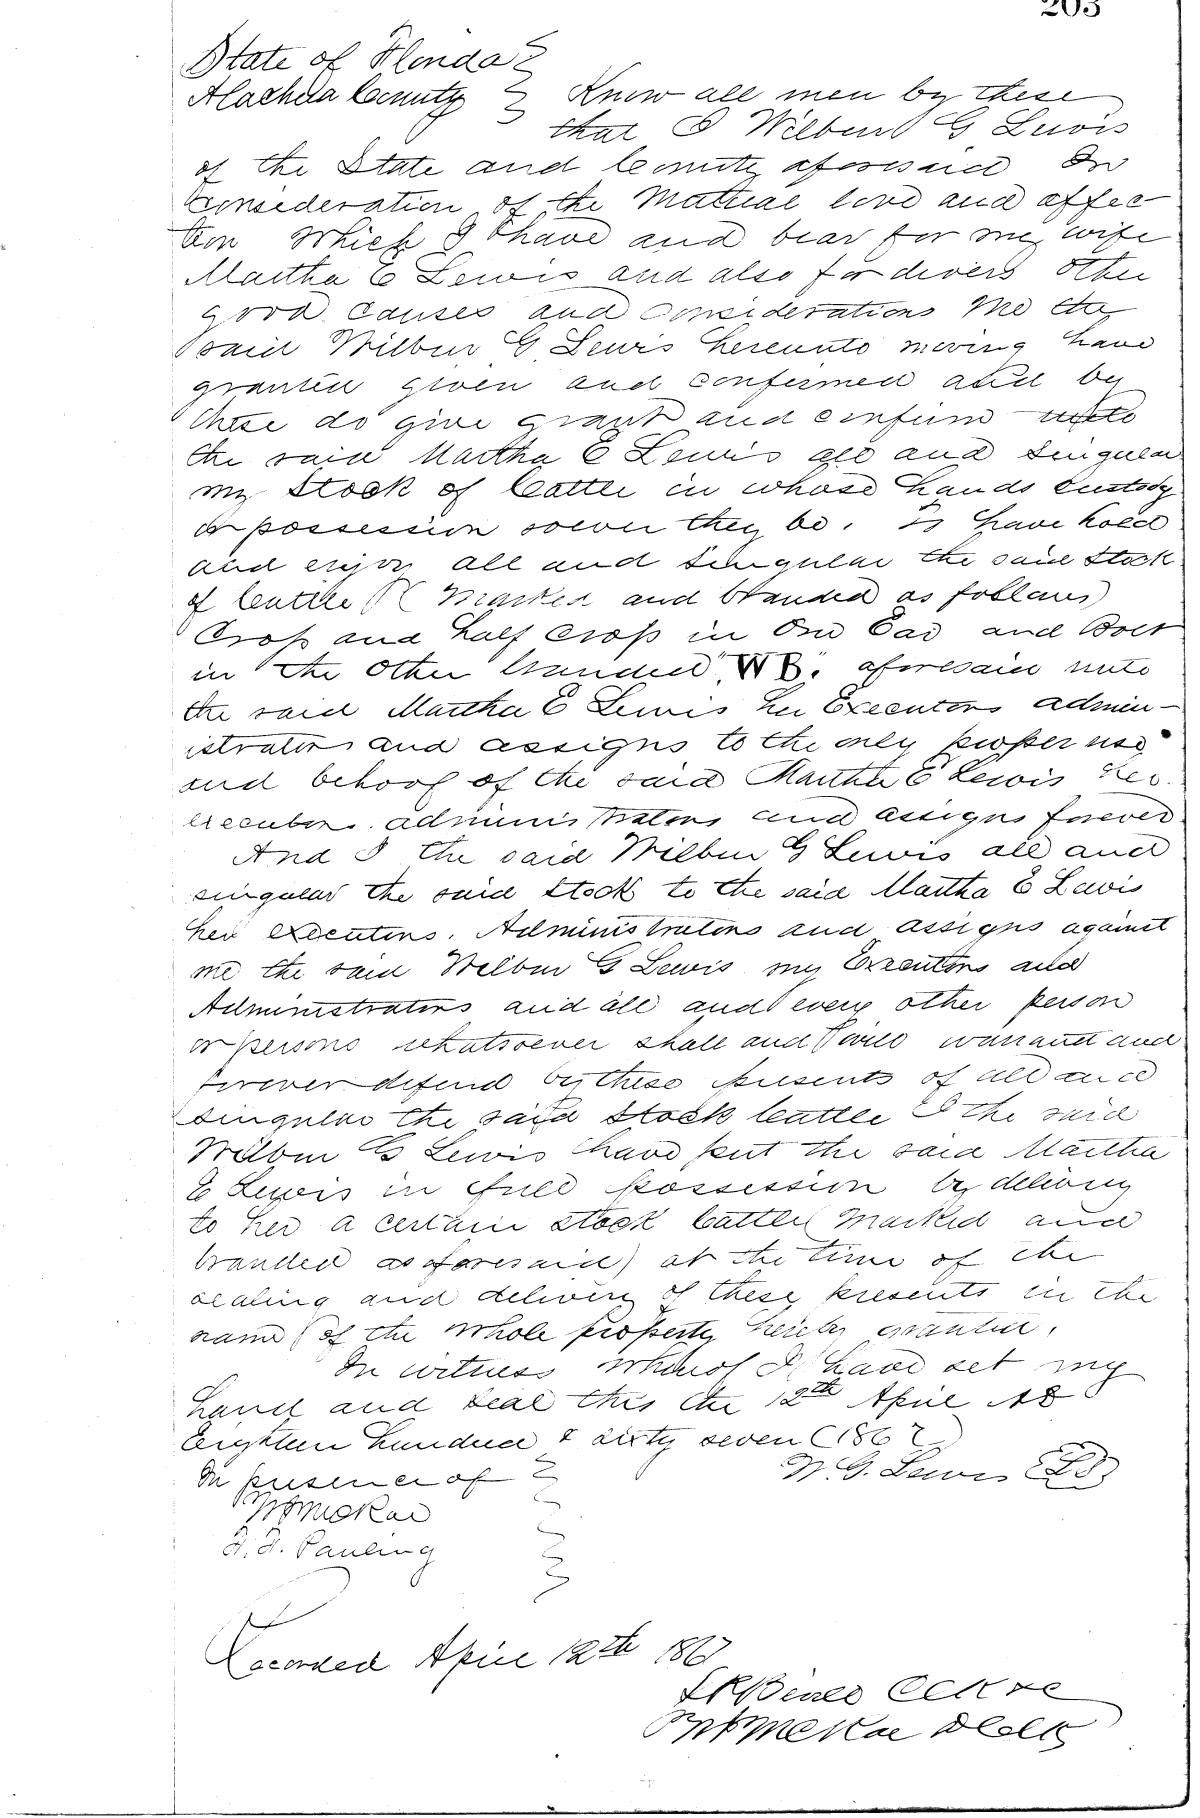 203
State of Florida
Alachua County Know all men by these
that I Wilbur G Lewis
of the State and County aforesaid In
Consideration of the Mutual love and affec-
tion which I have and bear for my wife
Martha E Lewis and also for divers other
good causes and considerations me the
said Wilbur G Lewis hereunto moving have
granted given and confirmed and by
these do give grant and confirm unto
the said Martha E Lewis all and singular
my stock of Cattle in whose hands custody
or possession soever they be. To have hold
and enjoy all and singular the said stock
of Cattle (Marked and branded as follows)
Crop and half crop in one Ear and
in the other branded "WB" aforesaid unto
the said Martha E Lewis her Executors admin-
istrators and assigns to the only proper use
and behoof of the said Martha E Lewis her
executors administrators and assigns forever
And I the said Wilbur G Lewis all and
singular the said stock to the said Martha E Lewis
her executors. Administrators and assigns against
me the said Wilbur G Lewis my Executors and
Administrators and all and every other person
or persons whatsoever shall and will warrant and
forever defend by these presents of all and
singular the said stock Cattle I the said
Wilbur G Lewis have put the said Martha
E Lewis in full possession by delivery
to her a certain stock Cattle (marked and
branded as aforesaid) at the time of the
sealing and delivery of these presents in the
name of the whole property hereby granted.
In witness whereof I have set my
hand and seal this the 12th April AD
Eighteen hundred & sixty seven (1867)
In presence of W. G. Lewis (LS)
McKae
Pauling
Recorded April 12th 1867
McKae